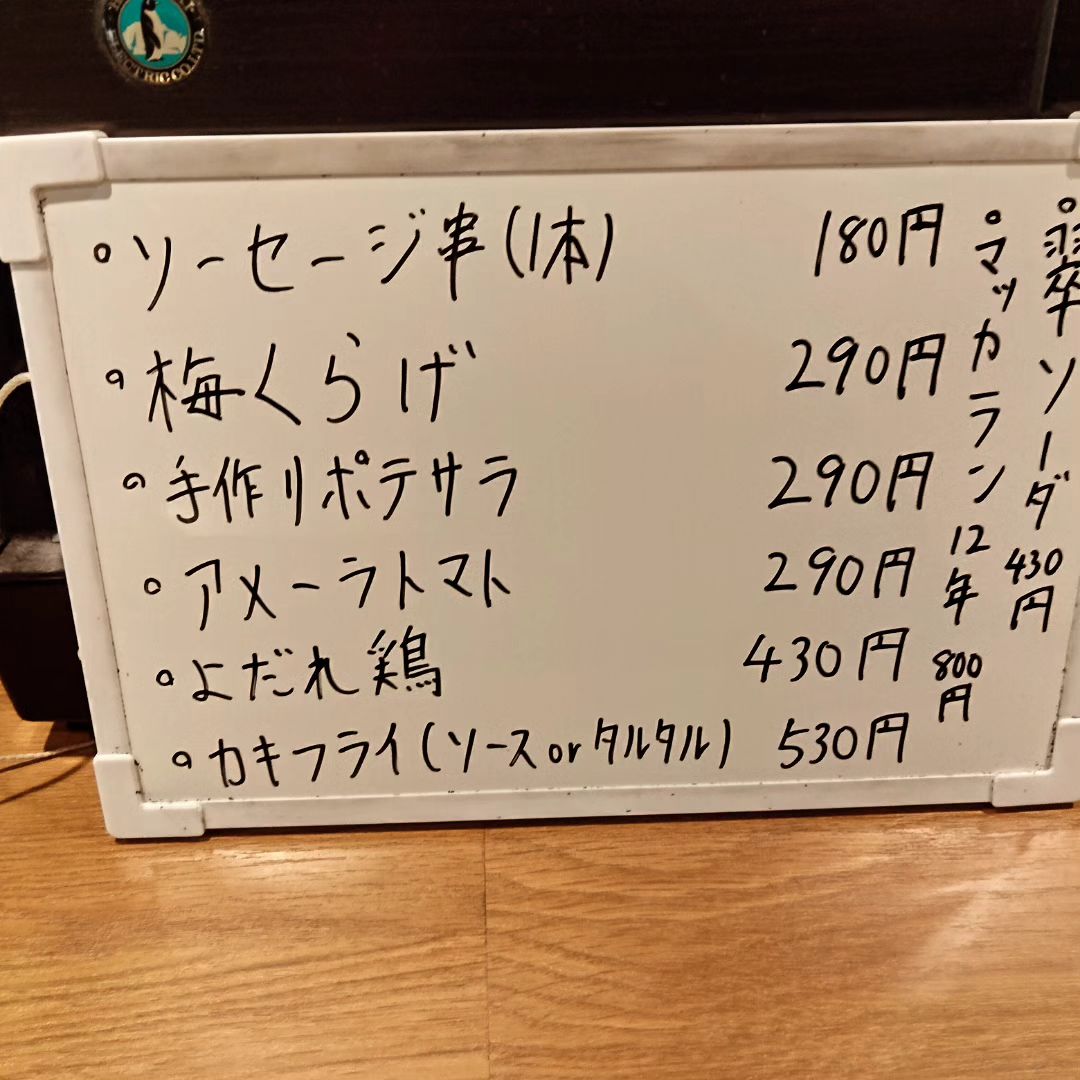 ECTRIC CO.LTD.
。ソーセージ串(1本) 180円
。梅くらげ 290円
。手作りポテサラ 290円
。アメーラトマト 290円
。よだれ鶏 430円
。カキフライ(ソースorタルタル) 530円
。翠ソーダ 430円
。マッカラン12年 800円